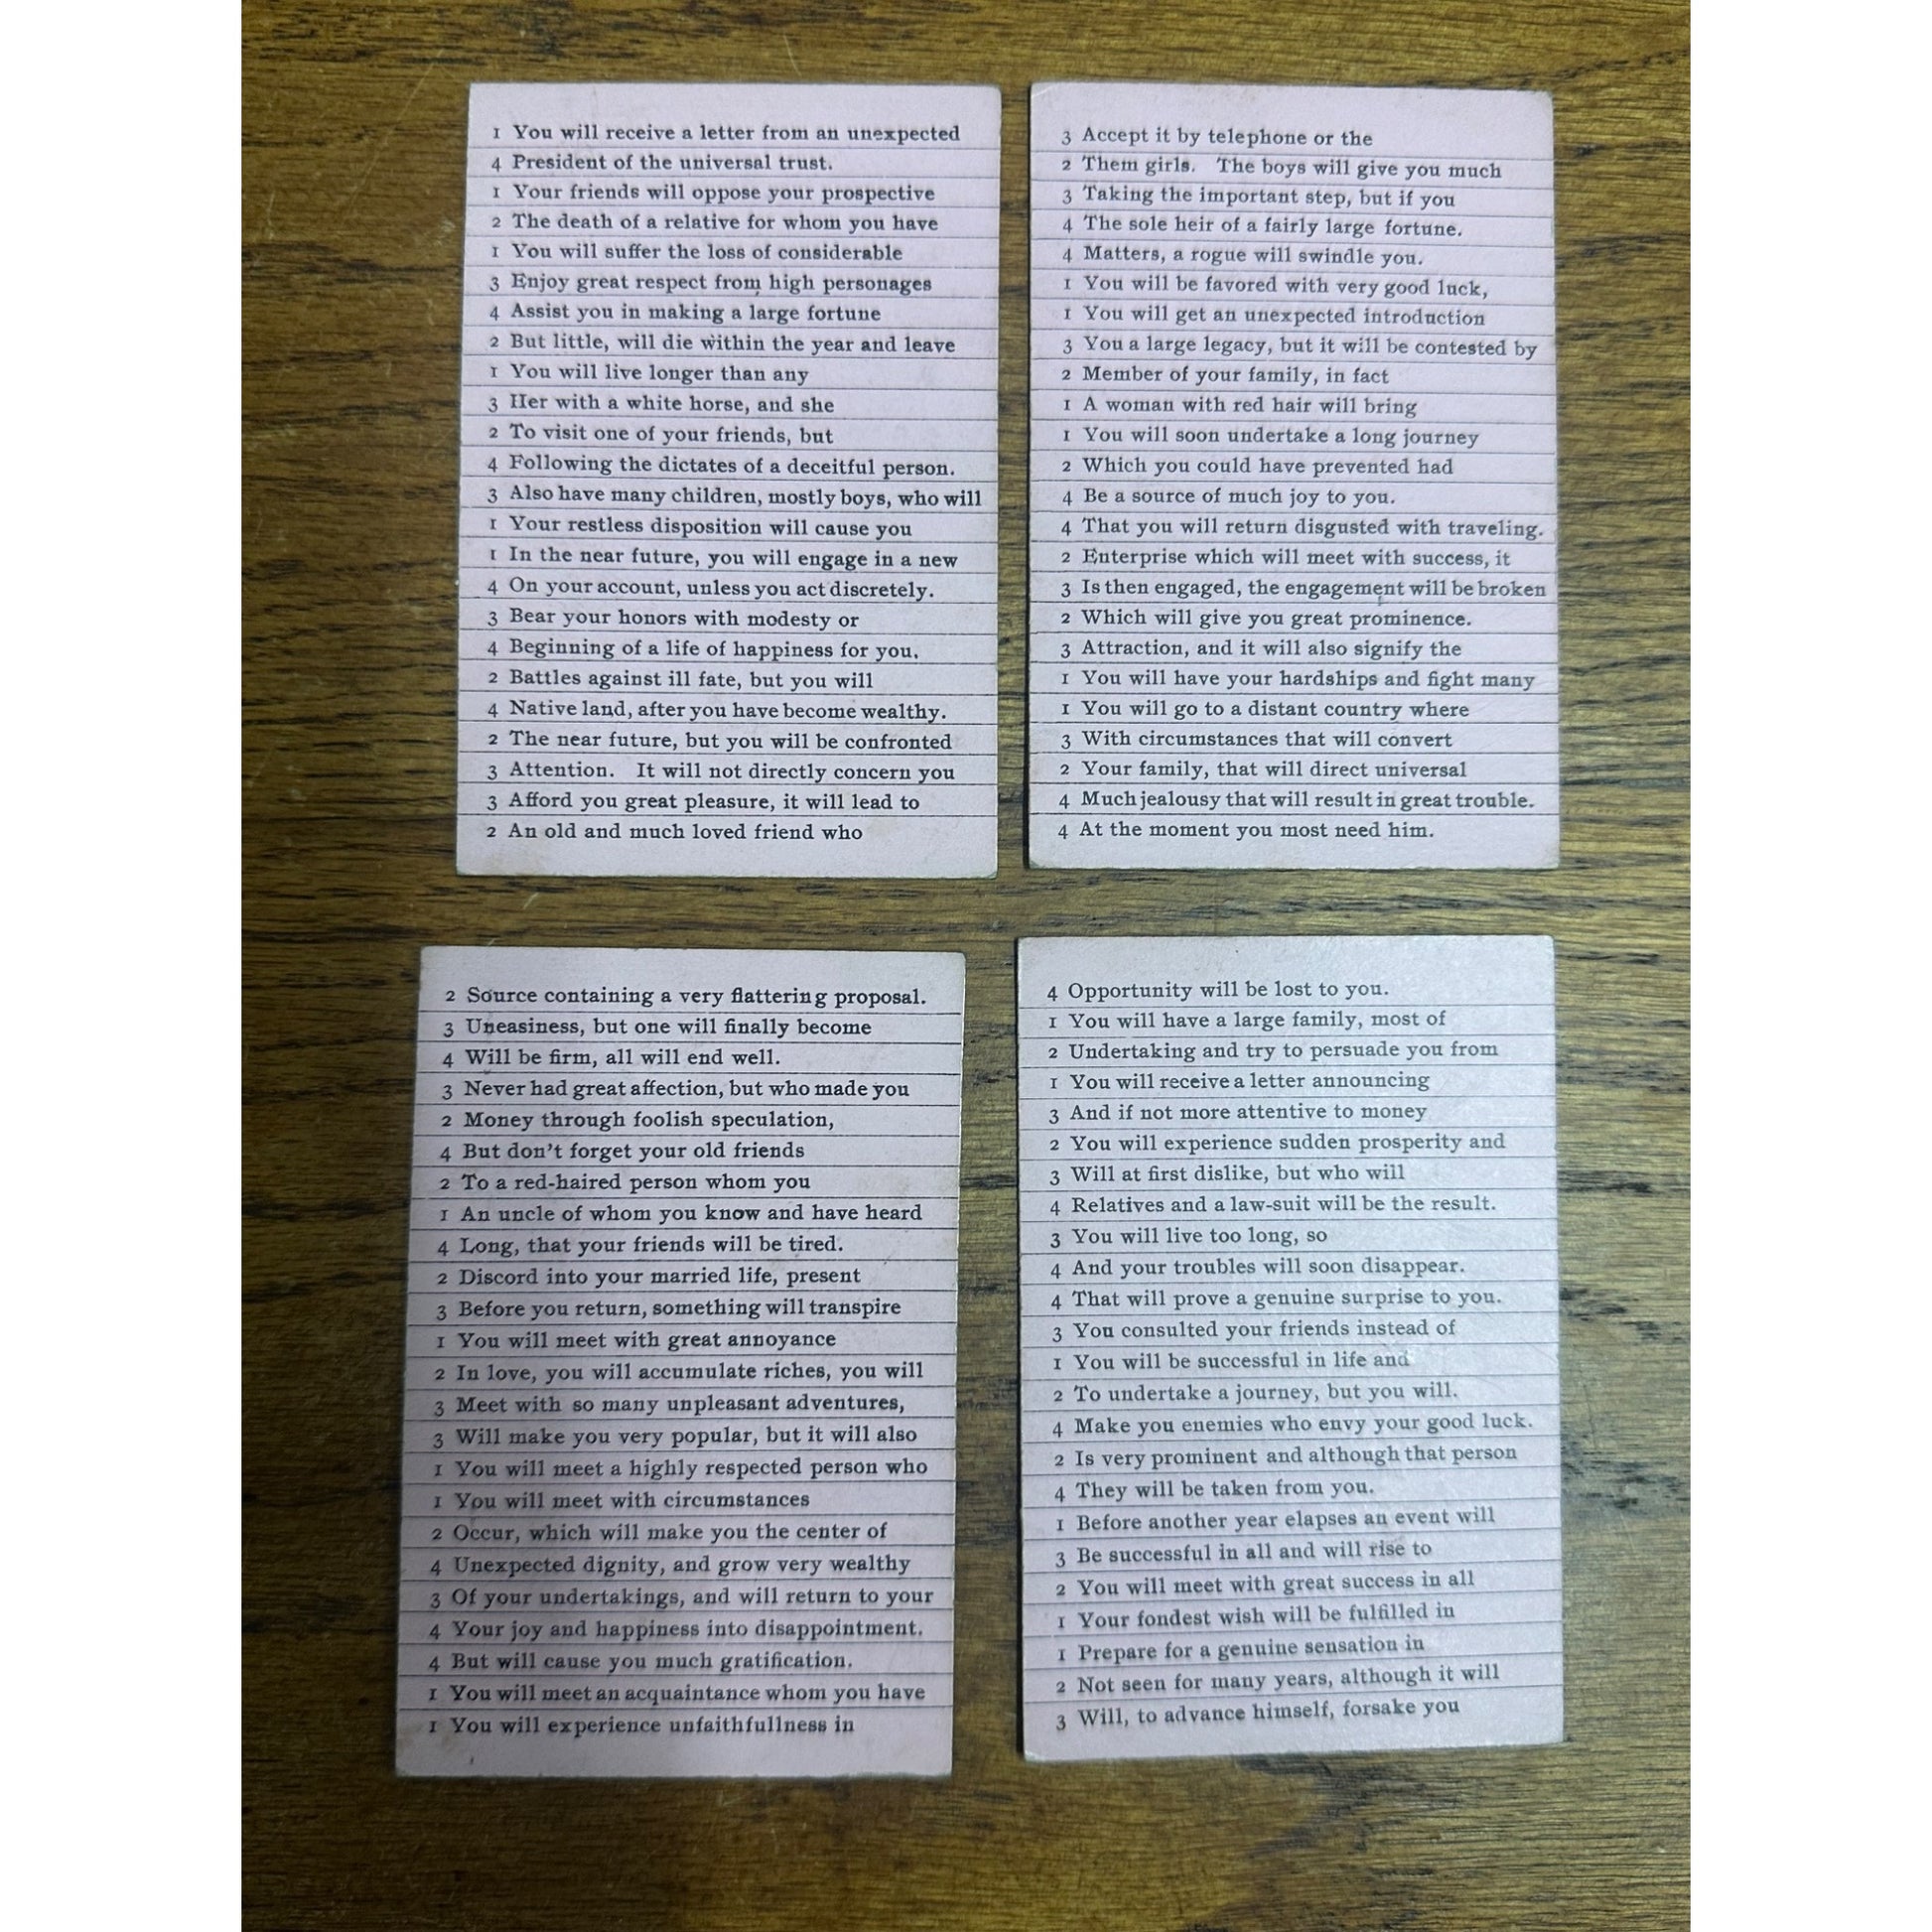 1 You will receive a letter from an unexpected
4 President of the universal trust.
1 Your friends will oppose your prospective
2 The death of a relative for whom you have
1 You will suffer the loss of considerable
3 Enjoy great respect from high personages
4 Assist you in making a large fortune
2 But little, will die within the year and leave
1 You will live longer than any
3 Her with a white horse, and she
2 To visit one of your friends, but
4 Following the dictates of a deceitful person.
3 Also have many children, mostly boys, who will
1 Your restless disposition will cause you
1 In the near future, you will engage in a new
4 On your account, unless you act discretely.
3 Bear your honors with modesty or
4 Beginning of a life of happiness for you.
2 Battles against ill fate, but you will
4 Native land, after you have become wealthy.
2 The near future, but you will be confronted
3 Attention. It will not directly concern you
3 Afford you great pleasure, it will lead to
2 An old and much loved friend who
3 Accept it by telephone or the
2 Them girls. The boys will give you much
3 Taking the important step, but if you
4 The sole heir of a fairly large fortune.
4 Matters, a rogue will swindle you.
1 You will be favored with very good luck,
1 You will get an unexpected introduction
3 You a large legacy, but it will be contested by
2 Member of your family, in fact
1 A woman with red hair will bring
1 You will soon undertake a long journey
2 Which you could have prevented had
4 Be a source of much joy to you.
4 That you will return disgusted with traveling.
2 Enterprise which will meet with success, it
3 Is then engaged, the engagement will be broken
2 Which will give you great prominence.
3 Attraction, and it will also signify the
1 You will have your hardships and fight many
1 You will go to a distant country where
3 With circumstances that will convert
2 Your family, that will direct universal
4 Much jealousy that will result in great trouble.
4 At the moment you most need him.
2 Source containing a very flattering proposal.
3 Uneasiness, but one will finally become
4 Will be firm, all will end well.
3 Never had great affection, but who made you
2 Money through foolish speculation,
4 But don't forget your old friends
2 To a red-haired person whom you
1 An uncle of whom you know and have heard
4 Long, that your friends will be tired.
2 Discord into your married life, present
3 Before you return, something will transpire
1 You will meet with great annoyance
2 In love, you will accumulate riches, you will
3 Meet with so many unpleasant adventures,
3 Will make you very popular, but it will also
1 You will meet a highly respected person who
1 You will meet with circumstances
2 Occur, which will make you the center of
4 Unexpected dignity, and grow very wealthy
3 Of your undertakings, and will return to your
4 Your joy and happiness into disappointment.
4 But will cause you much gratification.
1 You will meet an acquaintance whom you have
1 You will experience unfaithfullness in
4 Opportunity will be lost to you.
1 You will have a large family, most of
2 Undertaking and try to persuade you from
1 You will receive a letter announcing
3 And if not more attentive to money
2 You will experience sudden prosperity and
3 Will at first dislike, but who will
4 Relatives and a law-suit will be the result.
3 You will live too long, so
4 And your troubles will soon disappear.
4 That will prove a genuine surprise to you.
3 You consulted your friends instead of
1 You will be successful in life and
2 To undertake a journey, but you will.
4 Make you enemies who envy your good luck.
2 Is very prominent and although that person
4 They will be taken from you.
1 Before another year elapses an event will
3 Be successful in all and will rise to
2 You will meet with great success in all
1 Your fondest wish will be fulfilled in
1 Prepare for a genuine sensation in
2 Not seen for many years, although it will
3 Will, to advance himself, forsake you